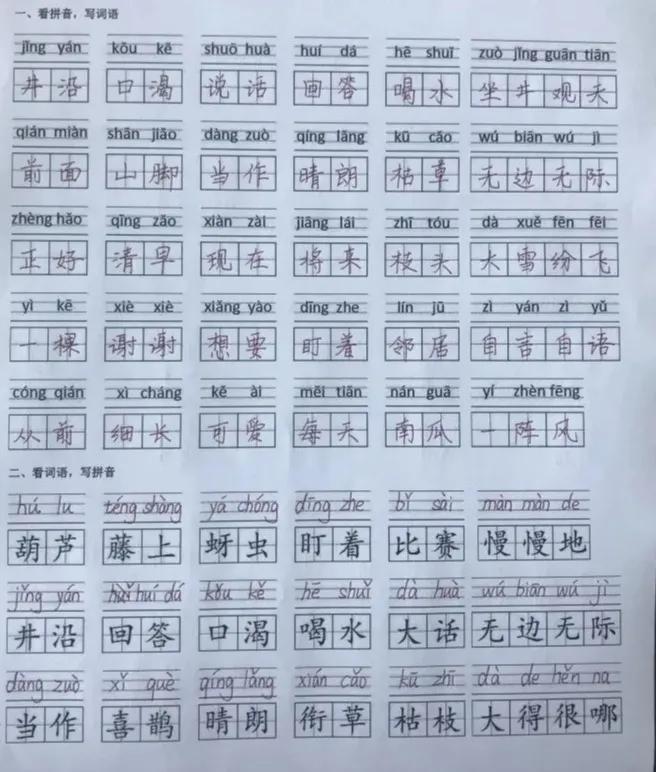 一、看拼音，写词语
jǐng yán kǒu kě shuō huà huí dá hē shuǐ zuò jǐng guān tiān
井沿 口渴 说话 回答 喝水 坐井观天
qián miàn shān jiǎo dàng zuò qíng lǎng kū cǎo wú biān wú jì
前面 山脚 当作 晴朗 枯草 无边无际
zhèng hǎo qīng zǎo xiàn zài jiāng lái zhī tóu dà xuě fēn fēi
正好 清早 现在 将来 枝头 大雪纷飞
yì kē xiè xiè xiǎng yào dīng zhe lín jū zì yán zì yǔ
一棵 谢谢 想要 盯着 邻居 自言自语
cóng qián xì cháng kě ài měi tiān nán guā yí zhèn fēng
从前 细长 可爱 每天 南瓜 一阵风
二、看词语，写拼音
hú lu téng shàng yá chóng dīng zhe bǐ sài màn màn de
葫芦 藤上 蚜虫 盯着 比赛 慢慢地
jǐng yán huí dá kǒu kě hē shuǐ dà huà wú biān wú jì
井沿 回答 口渴 喝水 大话 无边无际
dàng zuò xǐ què qíng lǎng xián cǎo kū zhī dà de hěn na
当作 喜鹊 晴朗 衔草 枯枝 大得很哪